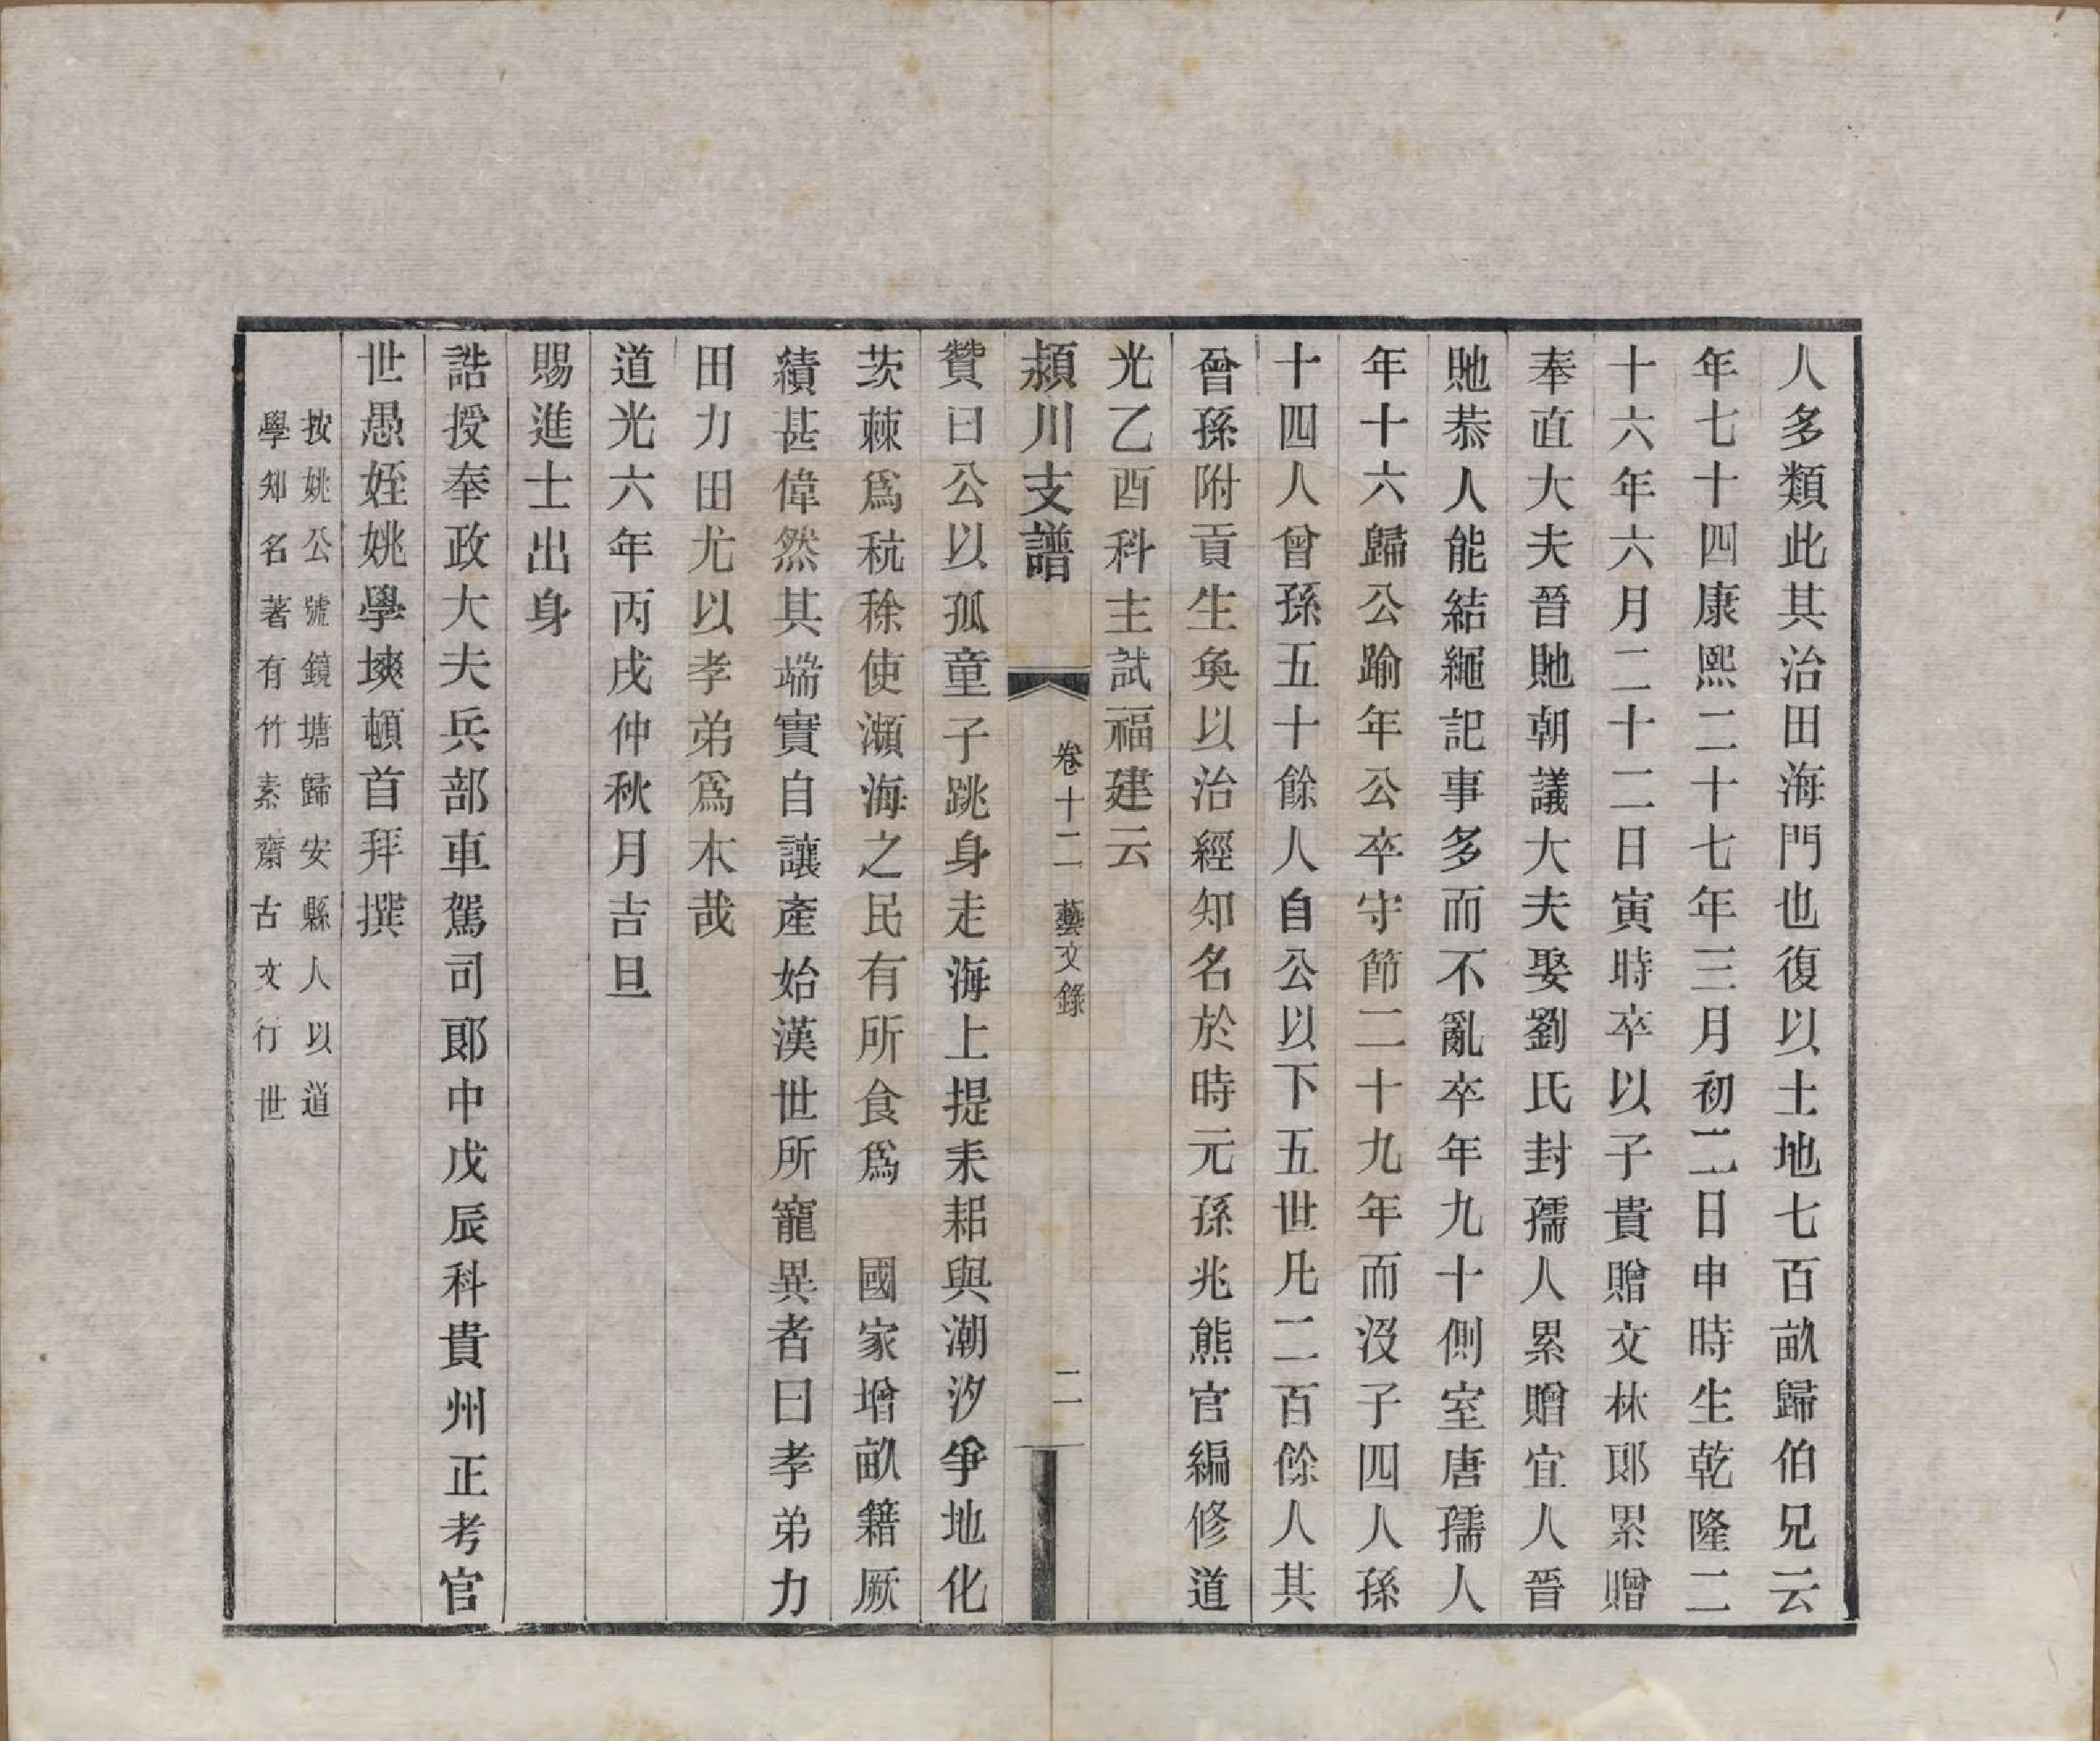 人多類此其治田海門也復以土地七百畝歸伯兄云
年七十四康熙二十七年三月初二日申時生乾隆二
十六年六月二十二日寅時卒以子貴贈文林郎累贈
奉直大夫晉貤朝議大夫娶劉氏封孺人累贈宜人晉
貤恭人能結繩記事多而不亂卒年九十側室唐孺人
年十六歸公踰年公卒守節二十九年而沒子四人孫
十四人曾孫五十餘人自公以下五世凡二百餘人其
曾孫附貢生奐以治經知名於時元孫兆熊官編修道
光乙酉科主試福建云
潁川支譜
卷十二 藝文錄
二
贊曰公以孤童子跳身走海上提耒耜與潮汐爭地化
茨棘爲秔稌使瀕海之民有所食爲 國家增畝籍厥
績甚偉然其端實自讓產始漢世所寵異者曰孝弟力
田力田尤以孝弟爲本哉
道光六年丙戌仲秋月吉旦
賜進士出身
誥授奉政大夫兵部車駕司郎中戊辰科貴州正考官
世愚姪姚學塽頓首拜撰
按姚公號鏡塘歸安縣人以道
學知名著有竹素齋古文行世